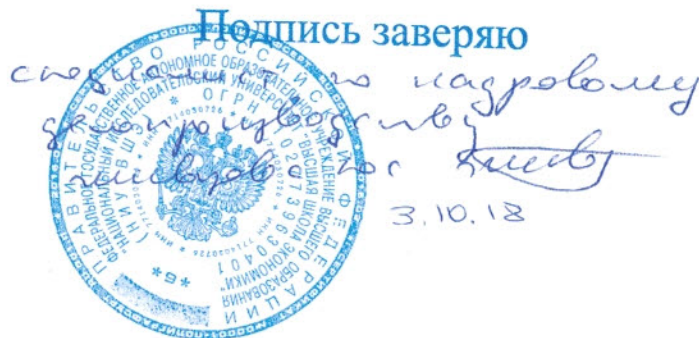 Подпись заверяю
специалист по кадровому
делопроизводству
3.10.18
ПРАВИТЕЛЬСТВО РОССИЙСКОЙ ФЕДЕРАЦИИ
ФЕДЕРАЛЬНОЕ ГОСУДАРСТВЕННОЕ АВТОНОМНОЕ ОБРАЗОВАТЕЛЬНОЕ УЧРЕЖДЕНИЕ ВЫСШЕГО ОБРАЗОВАНИЯ
"НАЦИОНАЛЬНЫЙ ИССЛЕДОВАТЕЛЬСКИЙ УНИВЕРСИТЕТ "ВЫСШАЯ ШКОЛА ЭКОНОМИКИ"
(НИУ ВШЭ) * ОГРН 1027739630401
* ИНН 7714030726 *
*6*